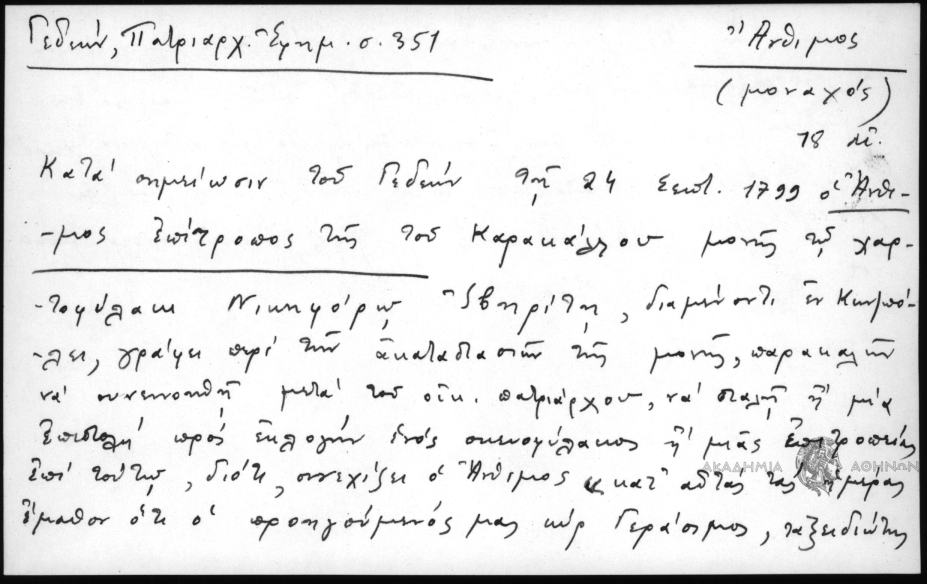 Γεδεών, Πατριαρχ. Ἐφημ. σ. 351
Ἄνθιμος
(μοναχός)
18 αἰ.
Κατά σημείωσιν τοῦ Γεδεών τῇ 24 Σεπτ. 1799 ὁ Ἄνθι-
-μος Ἐπίτροπος τῆς τοῦ Καρακάλλου μονῆς τῷ χαρ-
-τοφύλακι Νικηφόρῳ Ἰβηρίτῃ, διαμένοντι ἐν Κων)πό-
-λει, γράφει περί τῶν ἀκαταστασιῶν τῆς μονῆς, παρακαλῶν
νά συνεννοηθῇ μετά τοῦ οἰκ. πατριάρχου, νά σταλῇ ἤ μία
ἐπιστολή πρός ἐκλογήν ἑνός σκευοφύλακος ἤ μιᾶς ἐπιτροπείας
ἐπί τούτῳ, διότι, συνεχίζει ὁ Ἄνθιμος «κατ' αὐτάς τάς ἡμέρας
ἔμαθον ὅτι ὁ προηγούμενός μας κύρ Γεράσιμος, ταξειδιώτης
ΑΚΑΔΗΜΙΑ ΑΘΗΝΩΝ